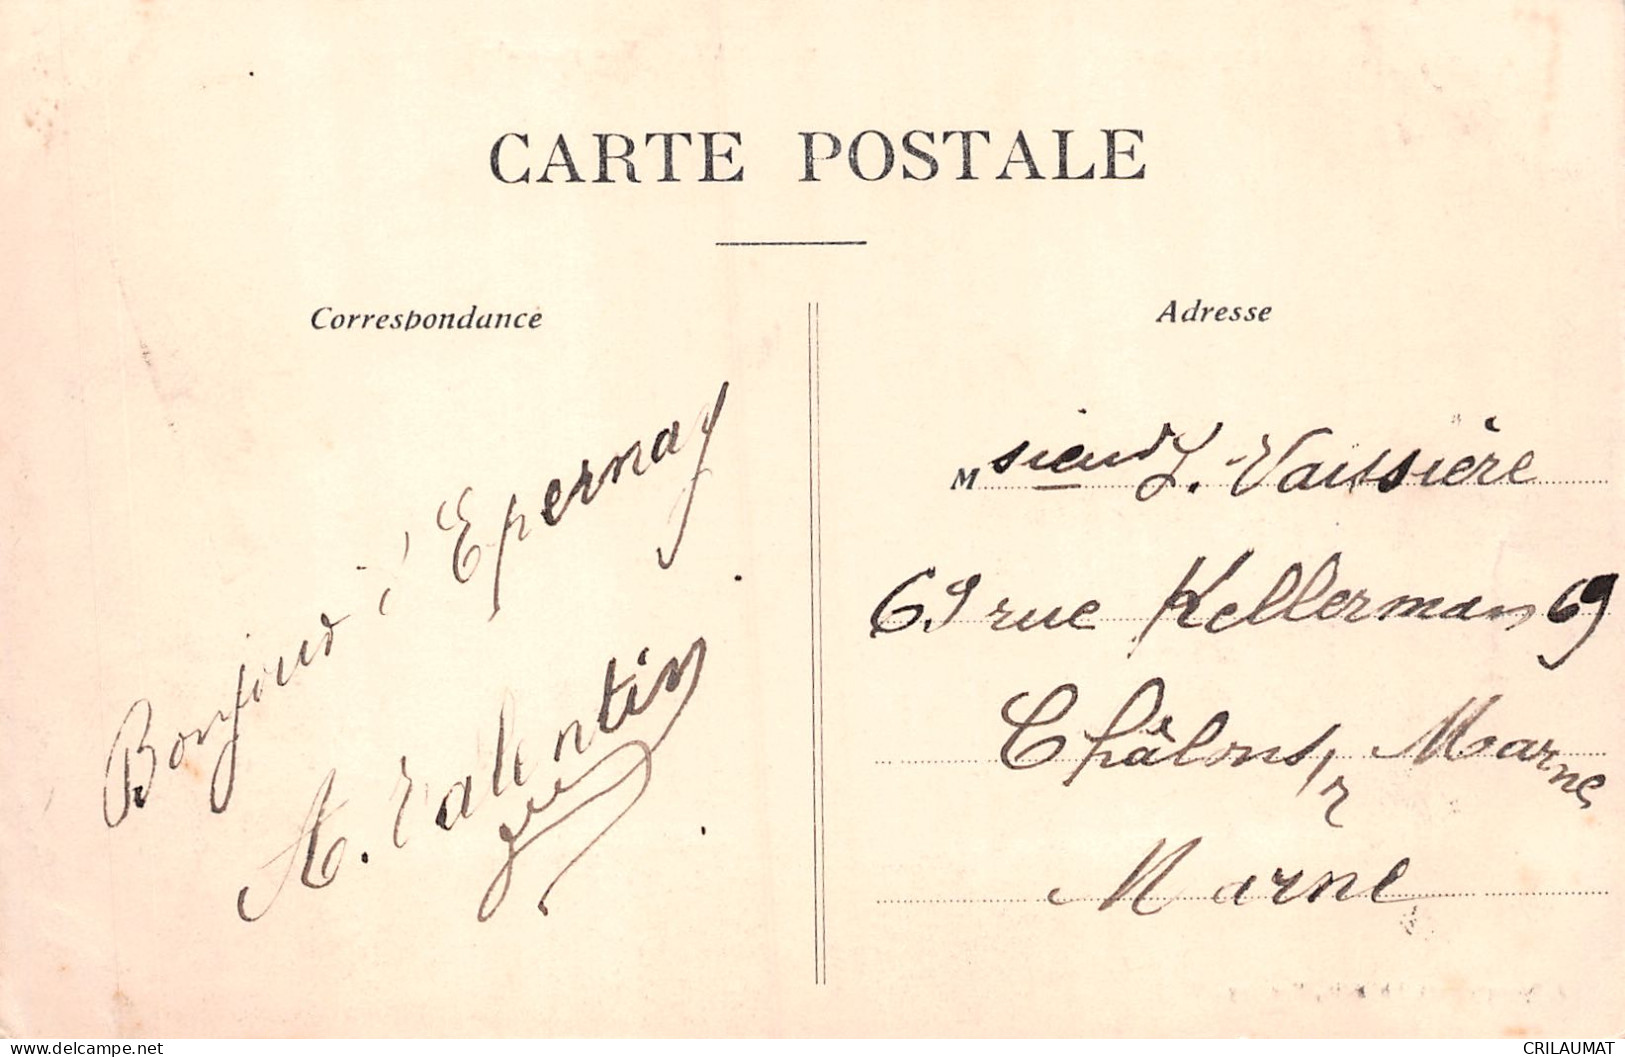 CARTE POSTALE
Correspondance
Bonjour d'Epernay
A. Valentin
Adresse
Msieur L. Vaissière
69 rue Kellermann 69
Châlons s/r Marne
Marne
www.delcampe.net
CRILAUMAT